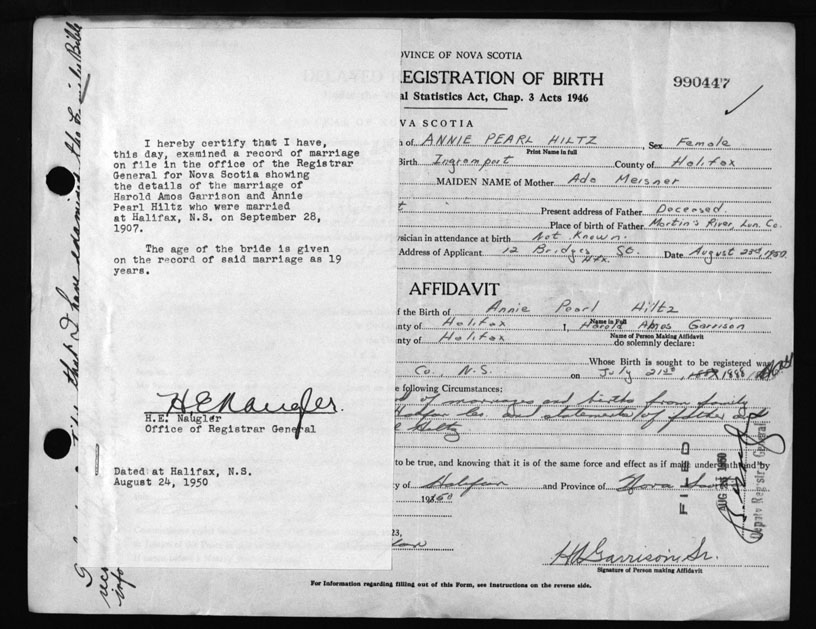 I hereby certify that I have,
this day, examined a record of marriage
on file in the office of the Registrar
General for Nova Scotia showing
the details of the marriage of
Harold Amos Garrison and Annie
Pearl Hiltz who were married
at Halifax, N.S. on September 28,
1907.
The age of the bride is given
on the record of said marriage as 19
years.
H.E. Naugler.
H.E. Naugler
Office of Registrar General
Dated at Halifax, N.S.
August 24, 1950
OVINCE OF NOVA SCOTIA
EGISTRATION OF BIRTH
990447
al Statistics Act, Chap. 3 Acts 1946
VA SCOTIA
of ANNIE PEARL HILTZ, Sex Female
Print Name in full
Birth Ingramport County of Halifax
MAIDEN NAME of Mother Ada Meisner
Present address of Father Deceased
Place of birth of Father Martin's River, Lun. Co.
ysician in attendance at birth Not Known.
Address of Applicant 12 Bridges St. Date August 23rd, 1950
Hfx.
AFFIDAVIT
f the Birth of Annie Pearl Hiltz
Name in Full
nty of Halifax I, Harold Amos Garrison
Name of Person Making Affidavit
nty of Halifax do solemnly declare:
Whose Birth is sought to be registered was
Co., N.S. on July 21st, 1888
e following Circumstances:
of marriages and births from family
Halifax Co. and statements of father and
Hiltz
to be true, and knowing that it is of the same force and effect as if made under oath and by
y of Halifax and Province of Nova Scotia
1950
FILED
AUG 28 1950
Deputy Registrar General
23,
H A Garrison Sr.
Signature of Person making Affidavit
For Information regarding filling out of this Form, see Instructions on the reverse side.
that I have examined the Family Bible
info